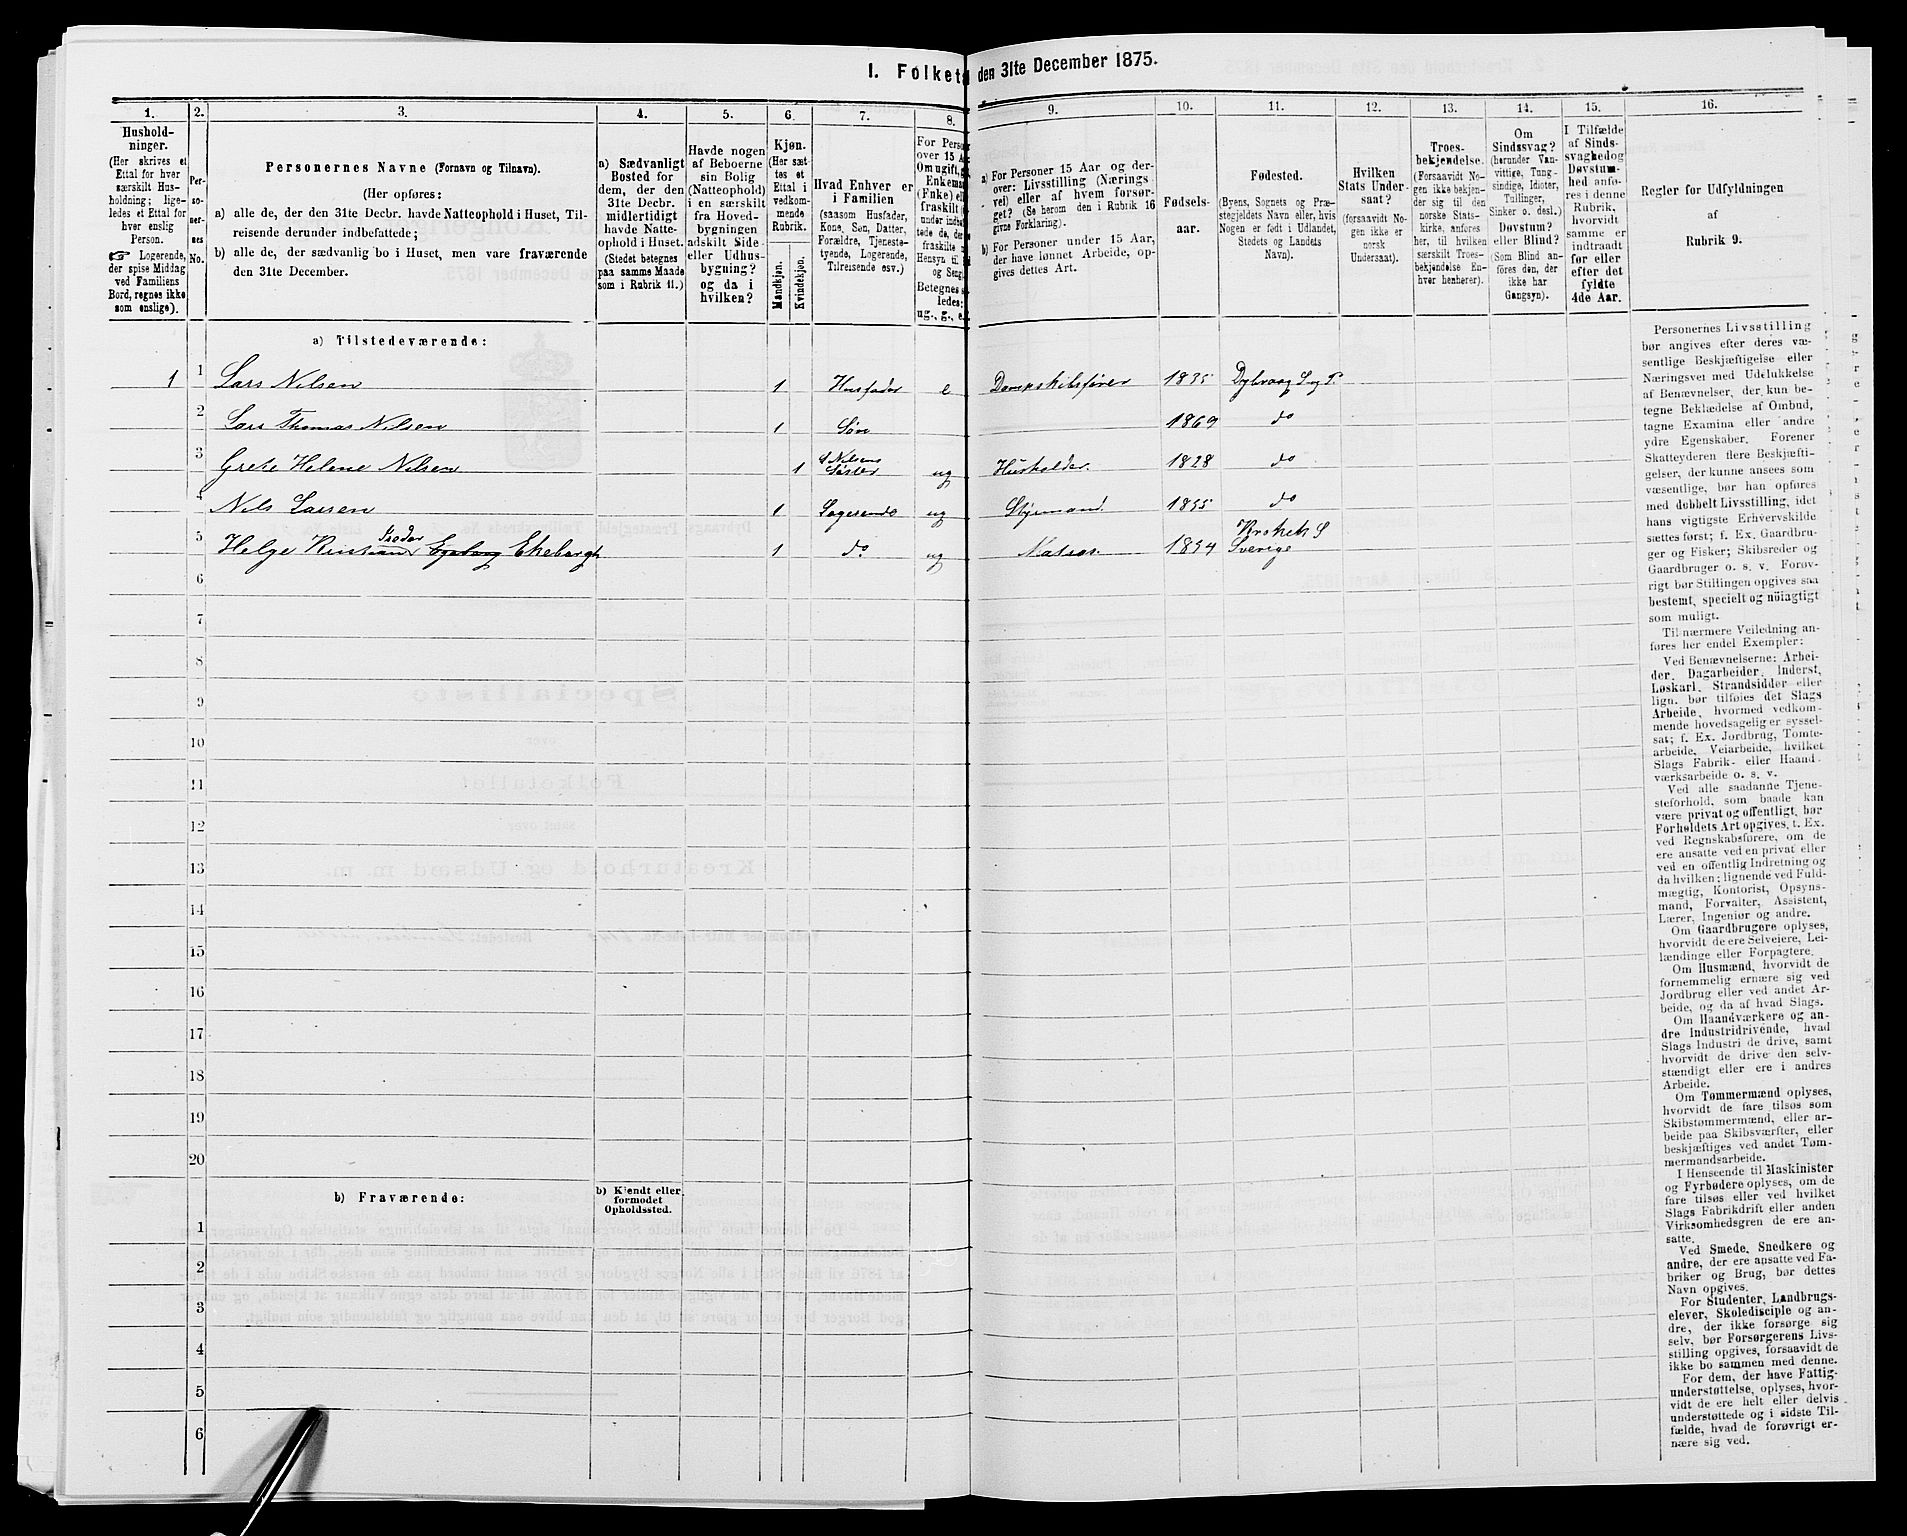 I. Folketa den 31te December 1875.
1. 2. 3. 4. 5. 6. 7. 8. 9. 10. 11. 12. 13. 14. 15. 16.
Hushold-
ninger.
(Her skrives et
Ettal for hver
særskilt Hus-
holdning; lige-
ledes et Ettal for
hver enslig
Person.
☞ Logerende,
der spise Middag
ved Familiens
Bord, regnes ikke
som enslige).
Per-
soner-
nes
No.
Personernes Navne (Fornavn og Tilnavn).
(Her opføres:
a) alle de, der den 31te Decbr. havde Natteophold i Huset, Til-
reisende derunder indbefattede;
b) alle de, der sædvanlig bo i Huset, men vare fraværende
den 31te December.
a) Sædvanligt
Bosted for
dem, der den
31te Decbr.
midlertidigt
havde Natte-
ophold i Huset.
(Stedet betegnes
paa samme Maade
som i Rubrik 11.)
Havde nogen
af Beboerne
sin Bolig
(Natteophold)
i en særskilt
fra Hoved-
bygningen
adskilt Side-
eller Udhus-
bygning?
og da i
hvilken?
Kjøn.
(Her sæt-
tes et
Ettal i
vedkom-
mende
Rubrik.
Mandkjøn.
Kvindekjøn.
Hvad Enhver er
i Familien
(saasom Husfader,
Kone, Søn, Datter,
Forældre, Tjeneste-
tyende, Logerende,
Tilreisende osv.)
For Perso
over 15 A
Om ugift, g
Enkema
(Enke) el
fraskilt
under indbe
tede de, de
fraskilte
Hensyn til
og Seng
Betegnes s
ledes:
ug., g., e.
a) For Personer 15 Aar og der-
over: Livsstilling (Nærings-
vei) eller af hvem forsør-
get? (Se herom den i Rubrik 16
givne Forklaring).
b) For Personer under 15 Aar,
der have lønnet Arbeide, op-
gives dettes Art.
Fødsels-
aar.
Fødested.
(Byens, Sognets og Præ-
stegjeldets Navn eller, hvis
Nogen er født i Udlandet,
Stedets og Landets
Navn).
Hvilken
Stats Under-
saat?
(forsaavidt No-
gen ikke er
norsk
Undersaat).
Troes-
bekjendelse.
(Forsaavidt No-
gen ikke bekjen-
der sig til den
norske Stats-
kirke, anføres
her, til hvilken
særskilt Troes-
bekjendelse En-
hver henhører).
Om
Sindssvag?
(herunder Van-
vittige, Tung-
sindige, Idioter,
Tullinger,
Sinker o. desl.)
Døvstum?
eller Blind?
(Som Blind an-
føres den, der
ikke har
Gangsyn).
I Tilfælde
af Sinds-
svaghed og
Døvstum-
hed anfø-
res i denne
Rubrik,
hvorvidt
samme er
indtraadt
før eller
efter det
fyldte
4de Aar.
Regler for Udfyldningen
af
Rubrik 9.
a) Tilstedeværende:
1 1 Lars Nilsen 1 Husfader e Dampskibsfører 1835 Dybvaag S og P.
2 Lars Thomas Nilsen 1 Søn 1869 do
3 Grete Helene Nilsen 1 L Nilsens Søster ug Husholder. 1828 do
4 Nils Larsen 1 Logerende ug Styrmand. 1855 do
5 Helge Kristian Ekebergh 1 do. ug Matros. 1854 Sverige
6
7
8
9
10
11
12
13
14
15
16
17
18
19
20
b) Fraværende: b) Kjendt eller
formodet
Opholdssted.
1
2
3
4
5
6
Personernes Livsstilling
bør angives efter deres væ-
sentlige Beskjæftigelse eller
Næringsvei med Udelukkelse
af Benævnelser, der kun be-
tegne Beklædelse af Ombud,
tagne Examina eller andre
ydre Egenskaber. Forener
Skatteyderen flere Beskjæfti-
gelser, der kunne ansees som
væsentlige, bør han opføres
med dobbelt Livsstilling, idet
hans vigtigste Erhvervskilde
sættes først; f. Ex. Gaardbru-
ger og Fisker; Skibsreder og
Gaardbruger o. s. v. Forøv-
rigt bør Stillingen opgives saa
bestemt, specielt og nøiagtigt
som muligt.
Til nærmere Veiledning an-
føres her endel Exempler:
Ved Benævnelserne: Arbei-
der, Dagarbeider, Inderst,
Løskarl, Strandsidder eller
lign. bør tilføies det Slags
Arbeide, hvormed vedkom-
mende hovedsagelig er syssel-
sat; f. Ex. Jordbrug, Tomte-
arbeide, Veiarbeide, hvilket
Slags Fabrik- eller Haand-
værksarbeide o. s. v.
Ved alle saadanne Tjene-
steforhold, som baade kan
være privat og offentligt, bør
Forholdets Art opgives, t. Ex.
ved Regnskabsførere, om de
ere ansatte ved en privat eller
ved en offentlig Indretning og
da hvilken; lignende ved Fuld-
mægtig, Kontorist, Opsyns-
mand, Forvalter, Assistent,
Lærer, Ingeniør og andre.
Om Gaardbrugere oplyses,
hvorvidt de ere Selveiere, Lei-
lændinge eller Forpagtere.
Om Husmænd, hvorvidt de
fornemmelig ernære sig ved
Jordbrug eller ved andet Ar-
beide, og da af hvad Slags.
Om Haandværkere og an-
dre Industridrivende, hvad
Slags Industri de drive, samt
hvorvidt de drive den selv-
stændigt eller ere i andres
Arbeide.
Om Tømmermænd oplyses,
hvorvidt de fare tilsøs som
Skibstømmermænd, eller ar-
beide paa Skibsværfter, eller
beskjæftiges ved andet Tøm-
mermandsarbeide.
I Henseende til Maskinister
og Fyrbødere oplyses, om de
fare tilsøs eller ved hvilket
Slags Fabrikdrift eller anden
Virksomhedsgren de ere an-
satte.
Ved Smede, Snedkere og
andre, der ere ansatte ved Fa-
briker og Brug, bør dettes
Navn opgives.
For Studenter, Landbrugs-
elever, Skoledisciple og an-
dre, der ikke forsørge sig
selv, bør Forsørgerens Livs-
stilling opgives, forsaavidt de
ikke bo sammen med denne.
For dem, der have Fattig-
understøttelse, oplyses, hvor-
vidt de ere helt eller delvis
understøttede og i sidste Til-
fælde, hvad de forøvrigt er-
nære sig ved.